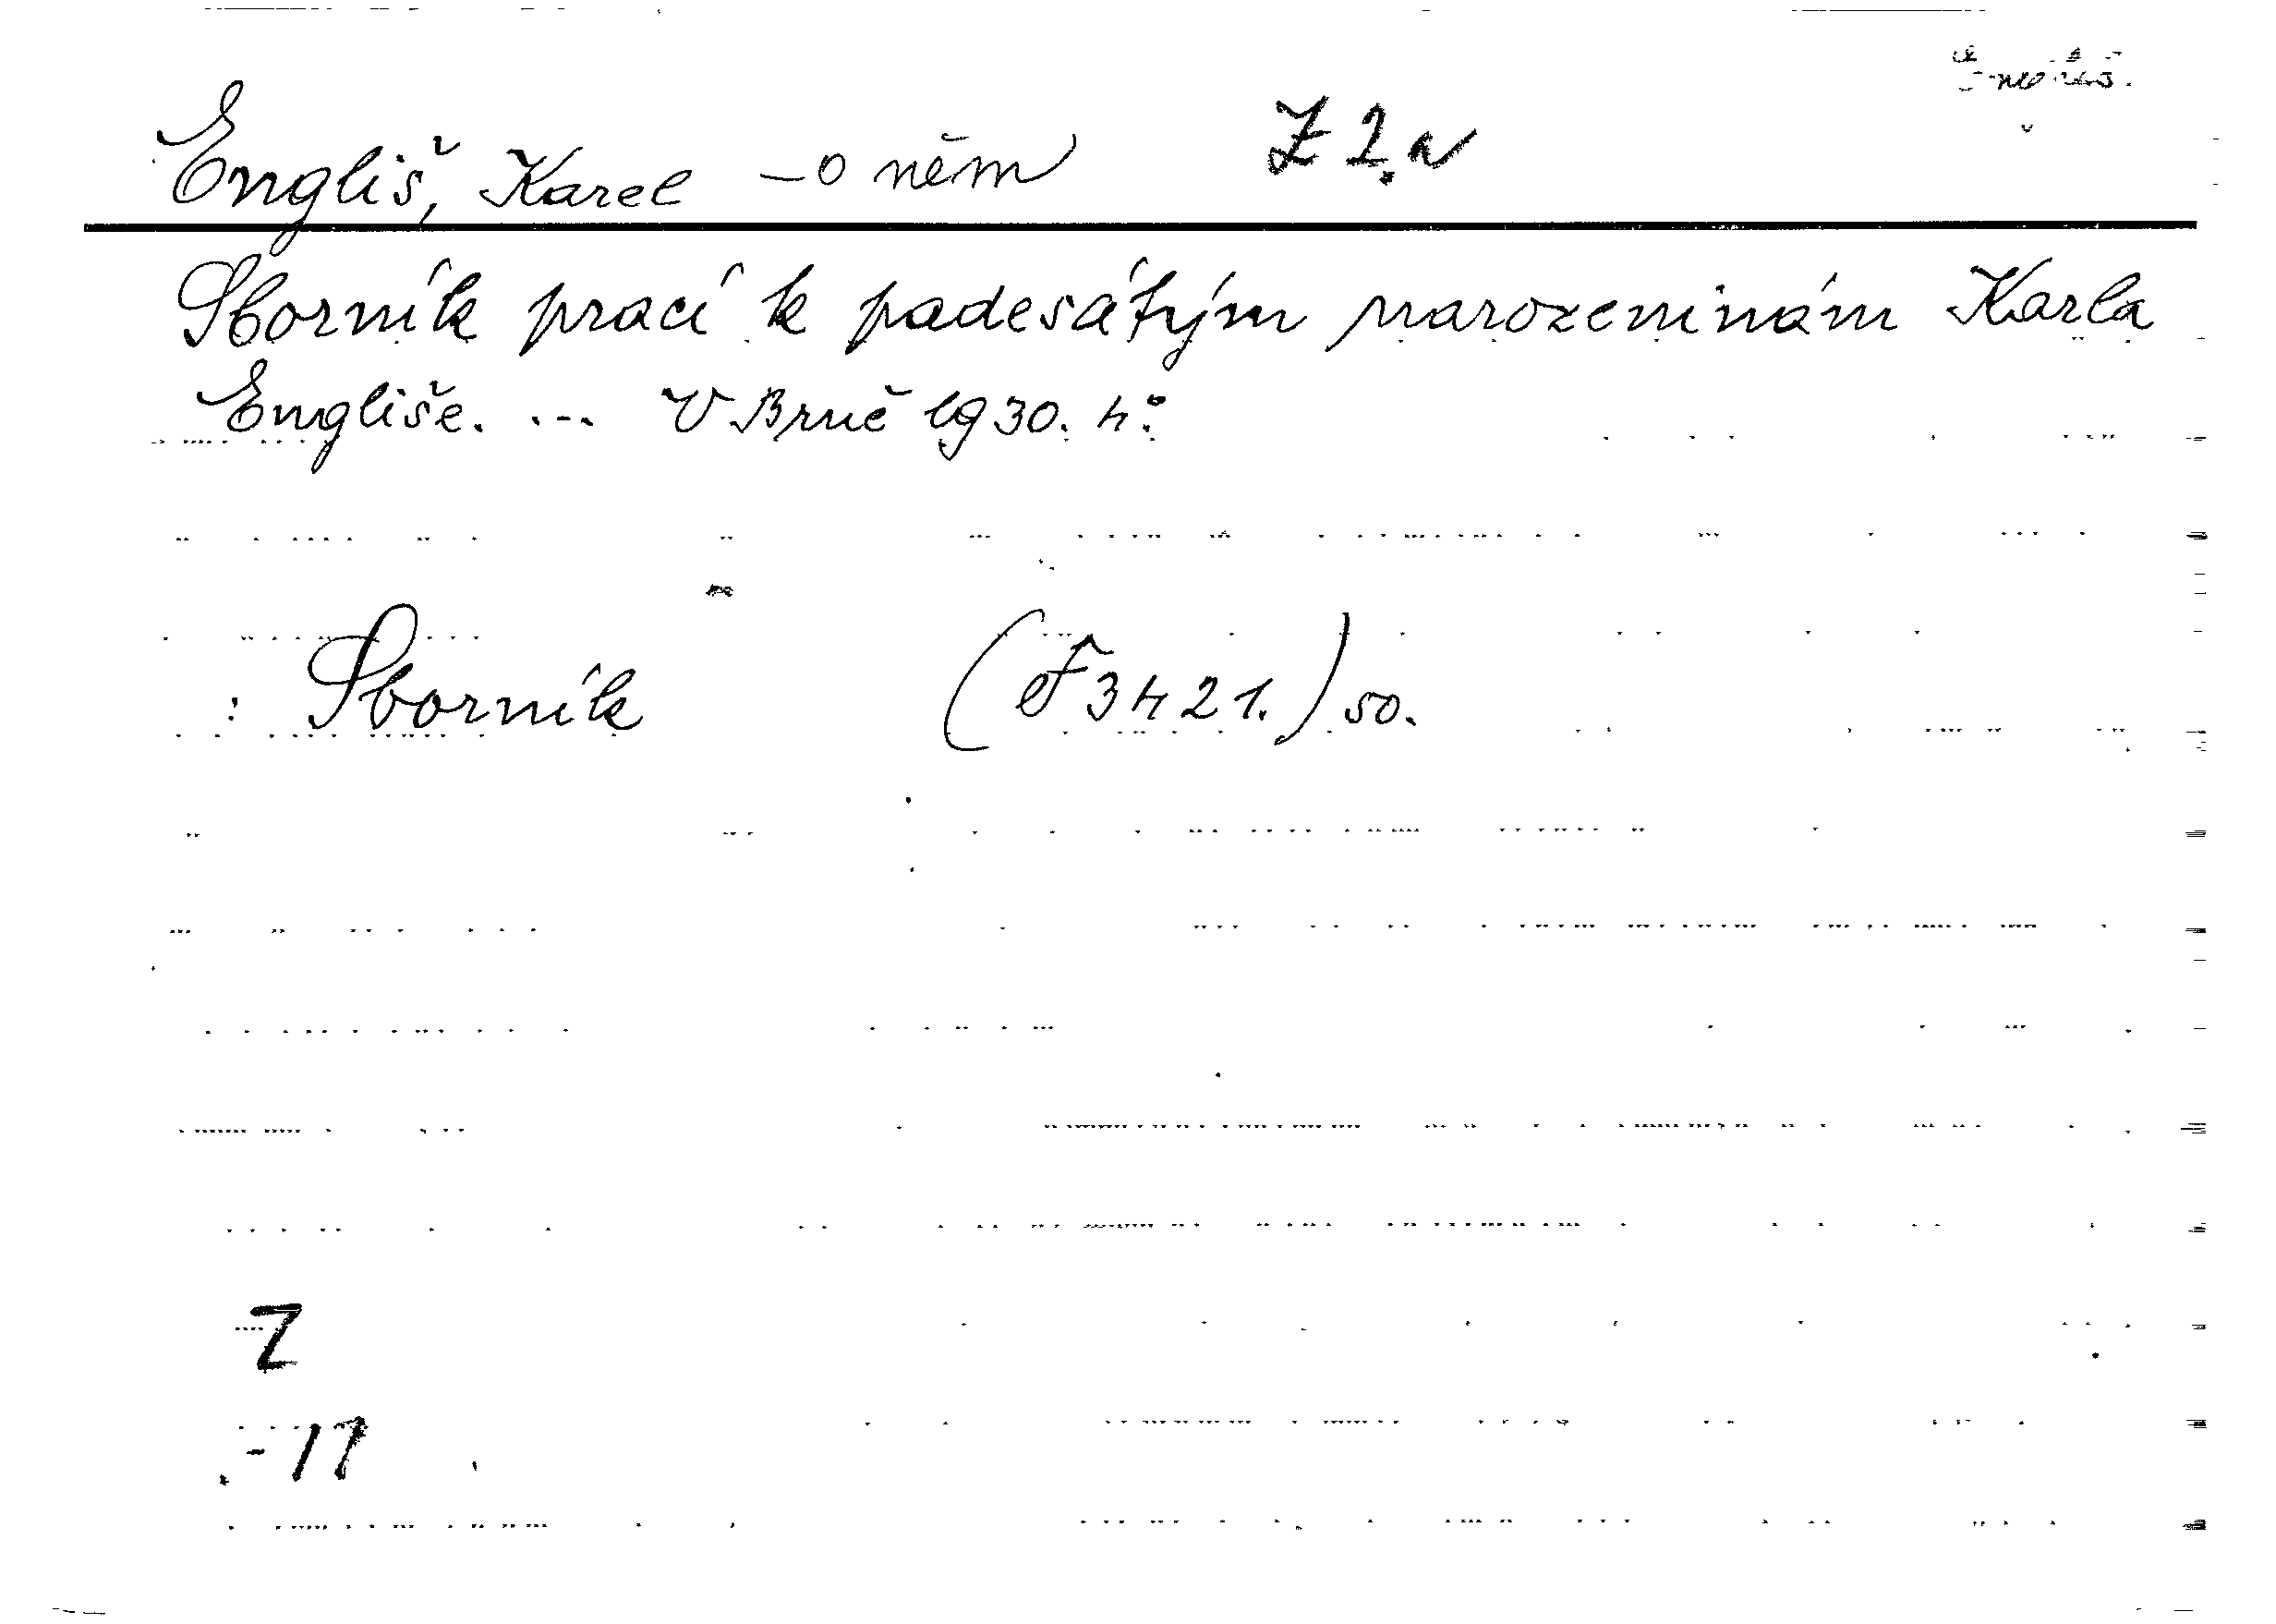 Engliš, Karel – o něm Z 2.a
Sborník prací k padesátým narozeninám Karla
Engliše. ... V Brně 1930. 4°.
: Sborník (F 3421.) 50.
Z
- 17